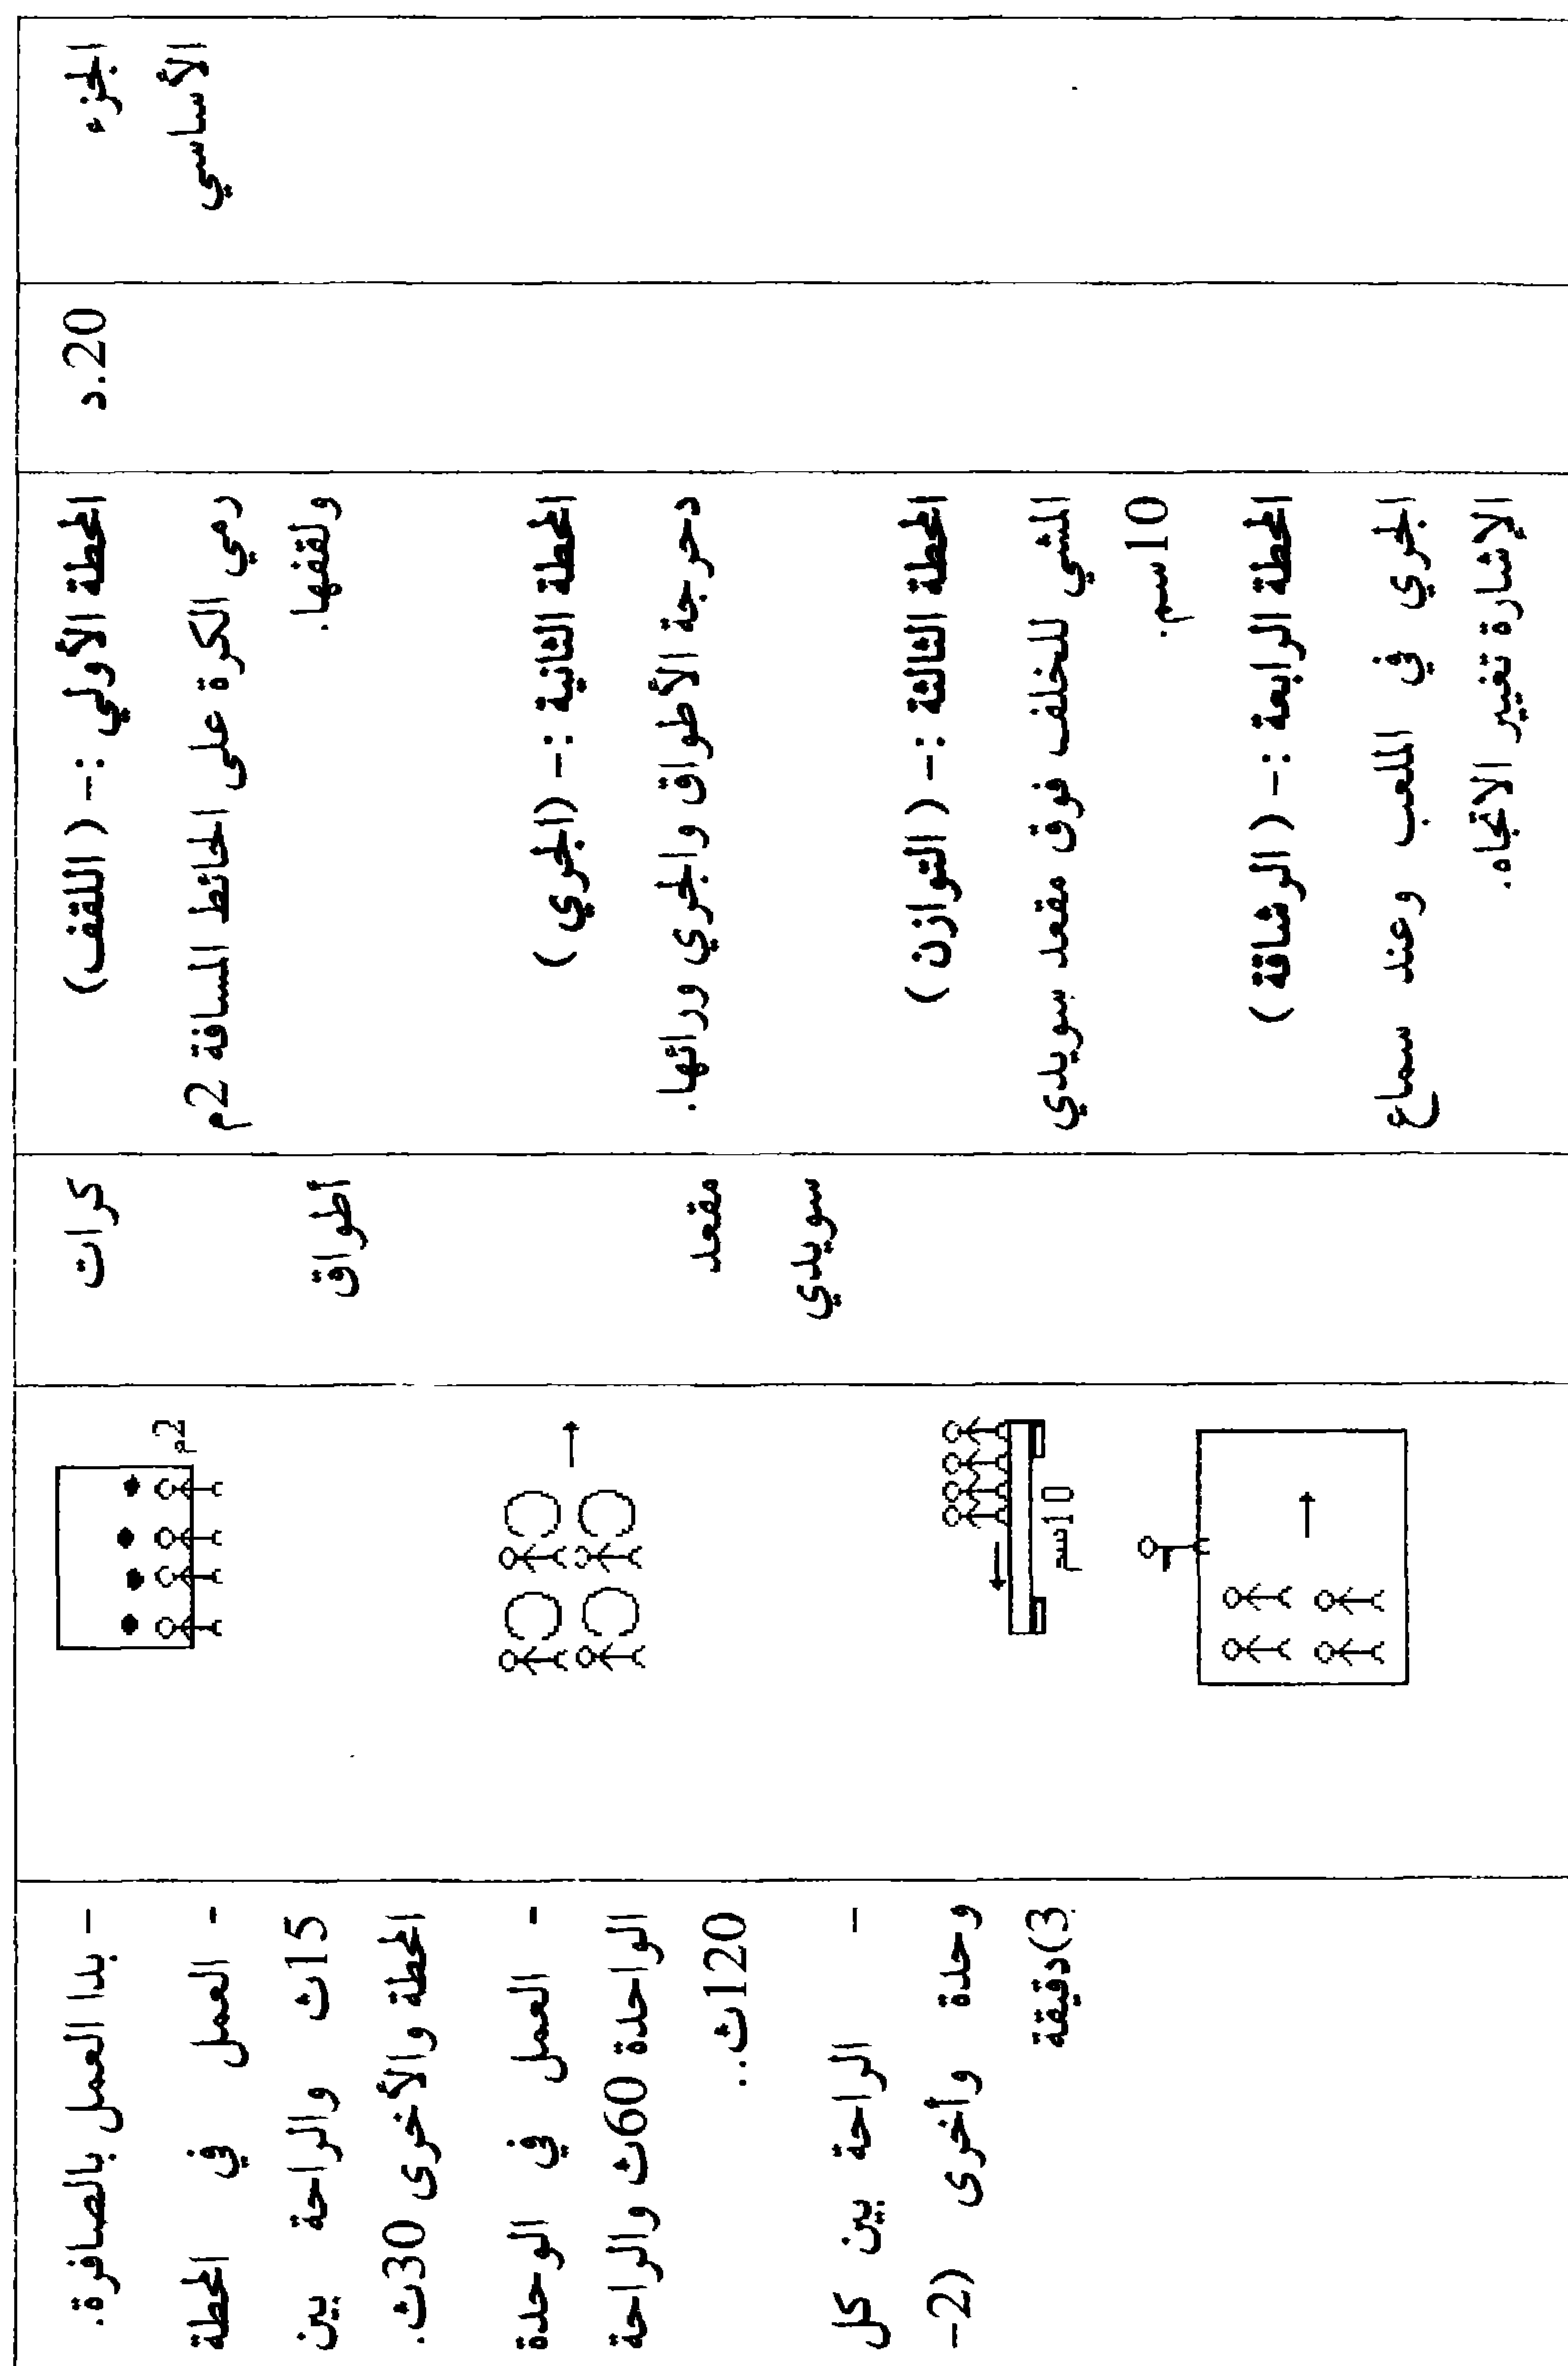 الجزء
الأساسي
20.د
المحطة الأولي :- ( اللقف)
رمي الكرة على الحائط المسافة 2م
ولقفها.
المحطة الثانية :- (الجري )
دحرجة الأطواق والجري ورائها.
المحطة الثالثة :- ( التوازن )
المشي للخلف فوق مقعد سويدي
10سم.
المحطة الرابعة :- ( الرشاقة )
الجري في الملعب وعند سماع
الإشارة تغيير الاتجاه.
كرات
أطواق
مقعد
سويدي
2م
10سم
- بدا العمل بالصافرة.
- العمل في المحطة
15ث والراحة بين
المحطة والأخرى 30ث.
- العمل في الوحدة
الواحدة 60ث والراحة
120ث..
- الراحة بين كل
وحدة وأخرى (2-
3)دقيقة